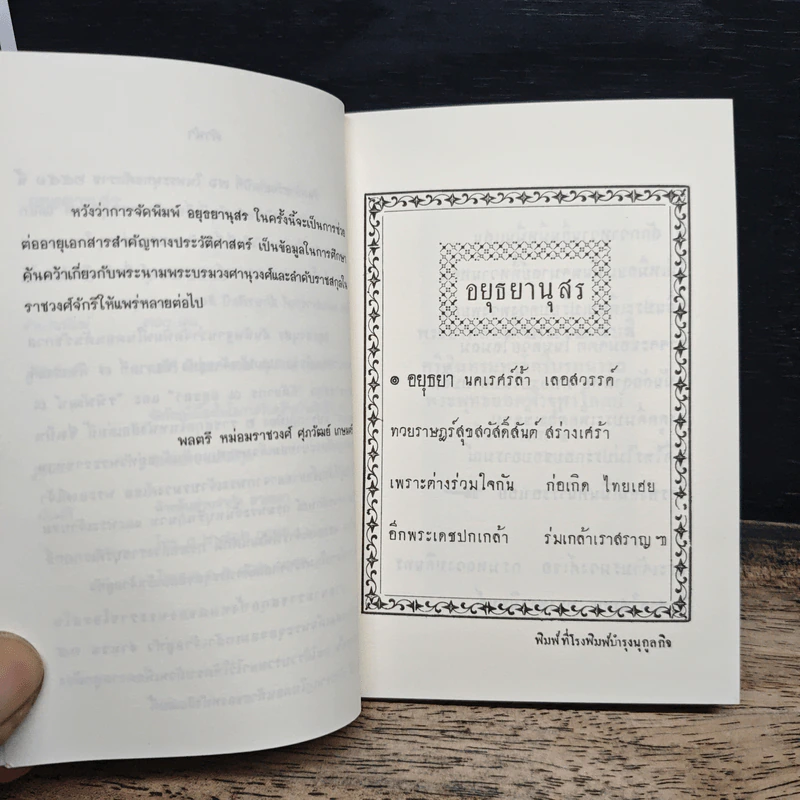 หวังว่าการจัดพิมพ์ อยุธยานุสร ในครั้งนี้จะเป็นการช่วย
ต่ออายุเอกสารสำคัญทางประวัติศาสตร์ เป็นข้อมูลในการศึกษา
ค้นคว้าเกี่ยวกับพระนามพระบรมวงศานุวงศ์และลำดับราชสกุลใน
ราชวงศ์จักรีให้แพร่หลายต่อไป
พลตรี หม่อมราชวงศ์ ศุภวัฒย์ เกษมศรี
อยุธยานุสร
๏ อยุธยา นคเรศร์ล้ำ เลอสวรรค์
ทวยราษฎร์สุขสวัสดิ์สันต์ สร่างเศร้า
เพราะต่างร่วมใจกัน ก่อเกิด ไทยเฮย
อีกพระเดชปกเกล้า ร่มเกล้าเราสราญ ฯ
พิมพ์ที่โรงพิมพ์บำรุงนุกูลกิจ